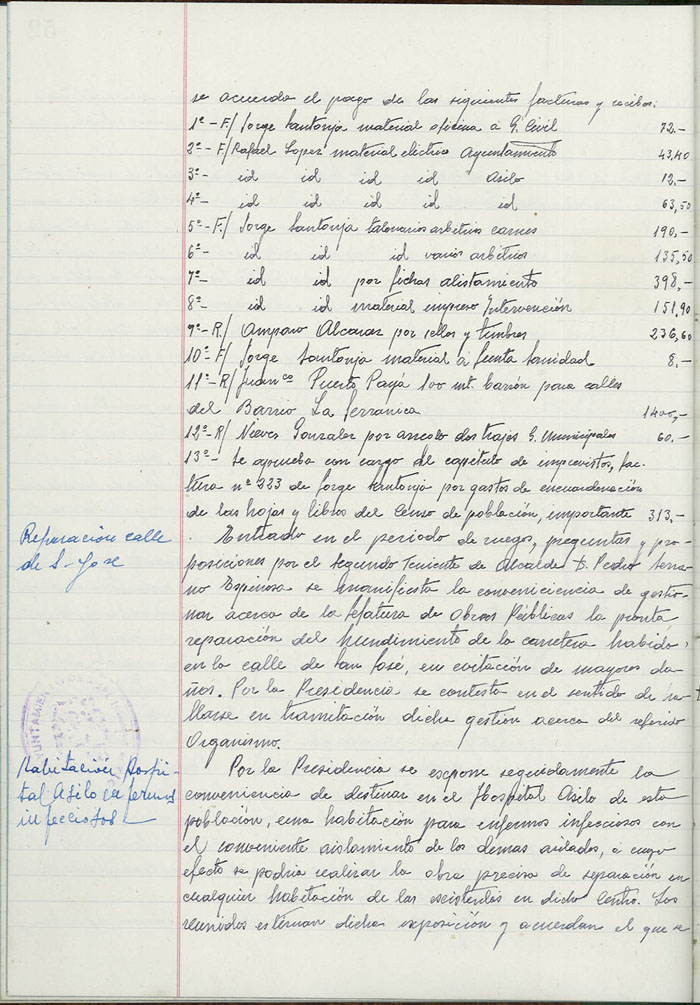 se acuerda el pago de las siguientes facturas y recibos:
1º - F/ Jorge Santonja material oficina a G. Civil 72.-
2º - F/ Rafael Lopez material electrico Ayuntamiento 43,40
3º - id id id id Asilo 12.-
4º - id id id id id 63,50
5º - F/ Jorge Santonja talonarios arbitrios carnes 190,-
6º - id id id varios arbitrios 135,50
7º - id id por fichas alistamiento 398,-
8º - id id material impreso Intervención 151,90
9º - R/ Amparo Alcaraz por sellos y timbres 236,60
10º - F/ Jorge Santonja material a Junta Sanidad 8,-
11º - R/ Juan Puerto Payá 100 mt. barión para calles
del Barrio La Serranica 1400,-
12º - R/ Nieves Gonzalez por arreglo dos trajes G. Municipales 60.-
13º - Se aprueba con cargo al capítulo de imprevistos, fac-
tura nº 223 de Jorge Santonja por gastos de encuadernación
de las hojas y libros del Censo de población, importante 313.-
Reparación calle
de S. Jose
Entrado en el periodo de ruegos, preguntas y pro-
posiciones por el segundo Teniente de Alcalde D. Pedro Serra-
no Espinosa se manifiesta la conveniciencia de gestio-
nar acerca de la Jefatura de Obras Públicas la pronta
reparación del hundimiento de la carretera habido
en la calle de San José, en evitación de mayores da-
ños. Por la Presidencia se contesta en el sentido de ha-
llarse en tramitación dicha gestión acerca del referido
Organismo.
AYUNTAMIENTO DE
Habitación Hospi-
tal Asilo enfermos
infecciosos
Por la Presidencia se expone seguidamente la
conveniencia de destinar en el Hospital Asilo de esta
población, una habitación para enfermos infecciosos con
el conveniente aislamiento de los demas asilados, a cuyo
efecto se podria realizar la obra precisa de separación en
cualquier habitación de las existentes en dicho Centro. Los
reunidos estiman dicha exposición y acuerdan el que se